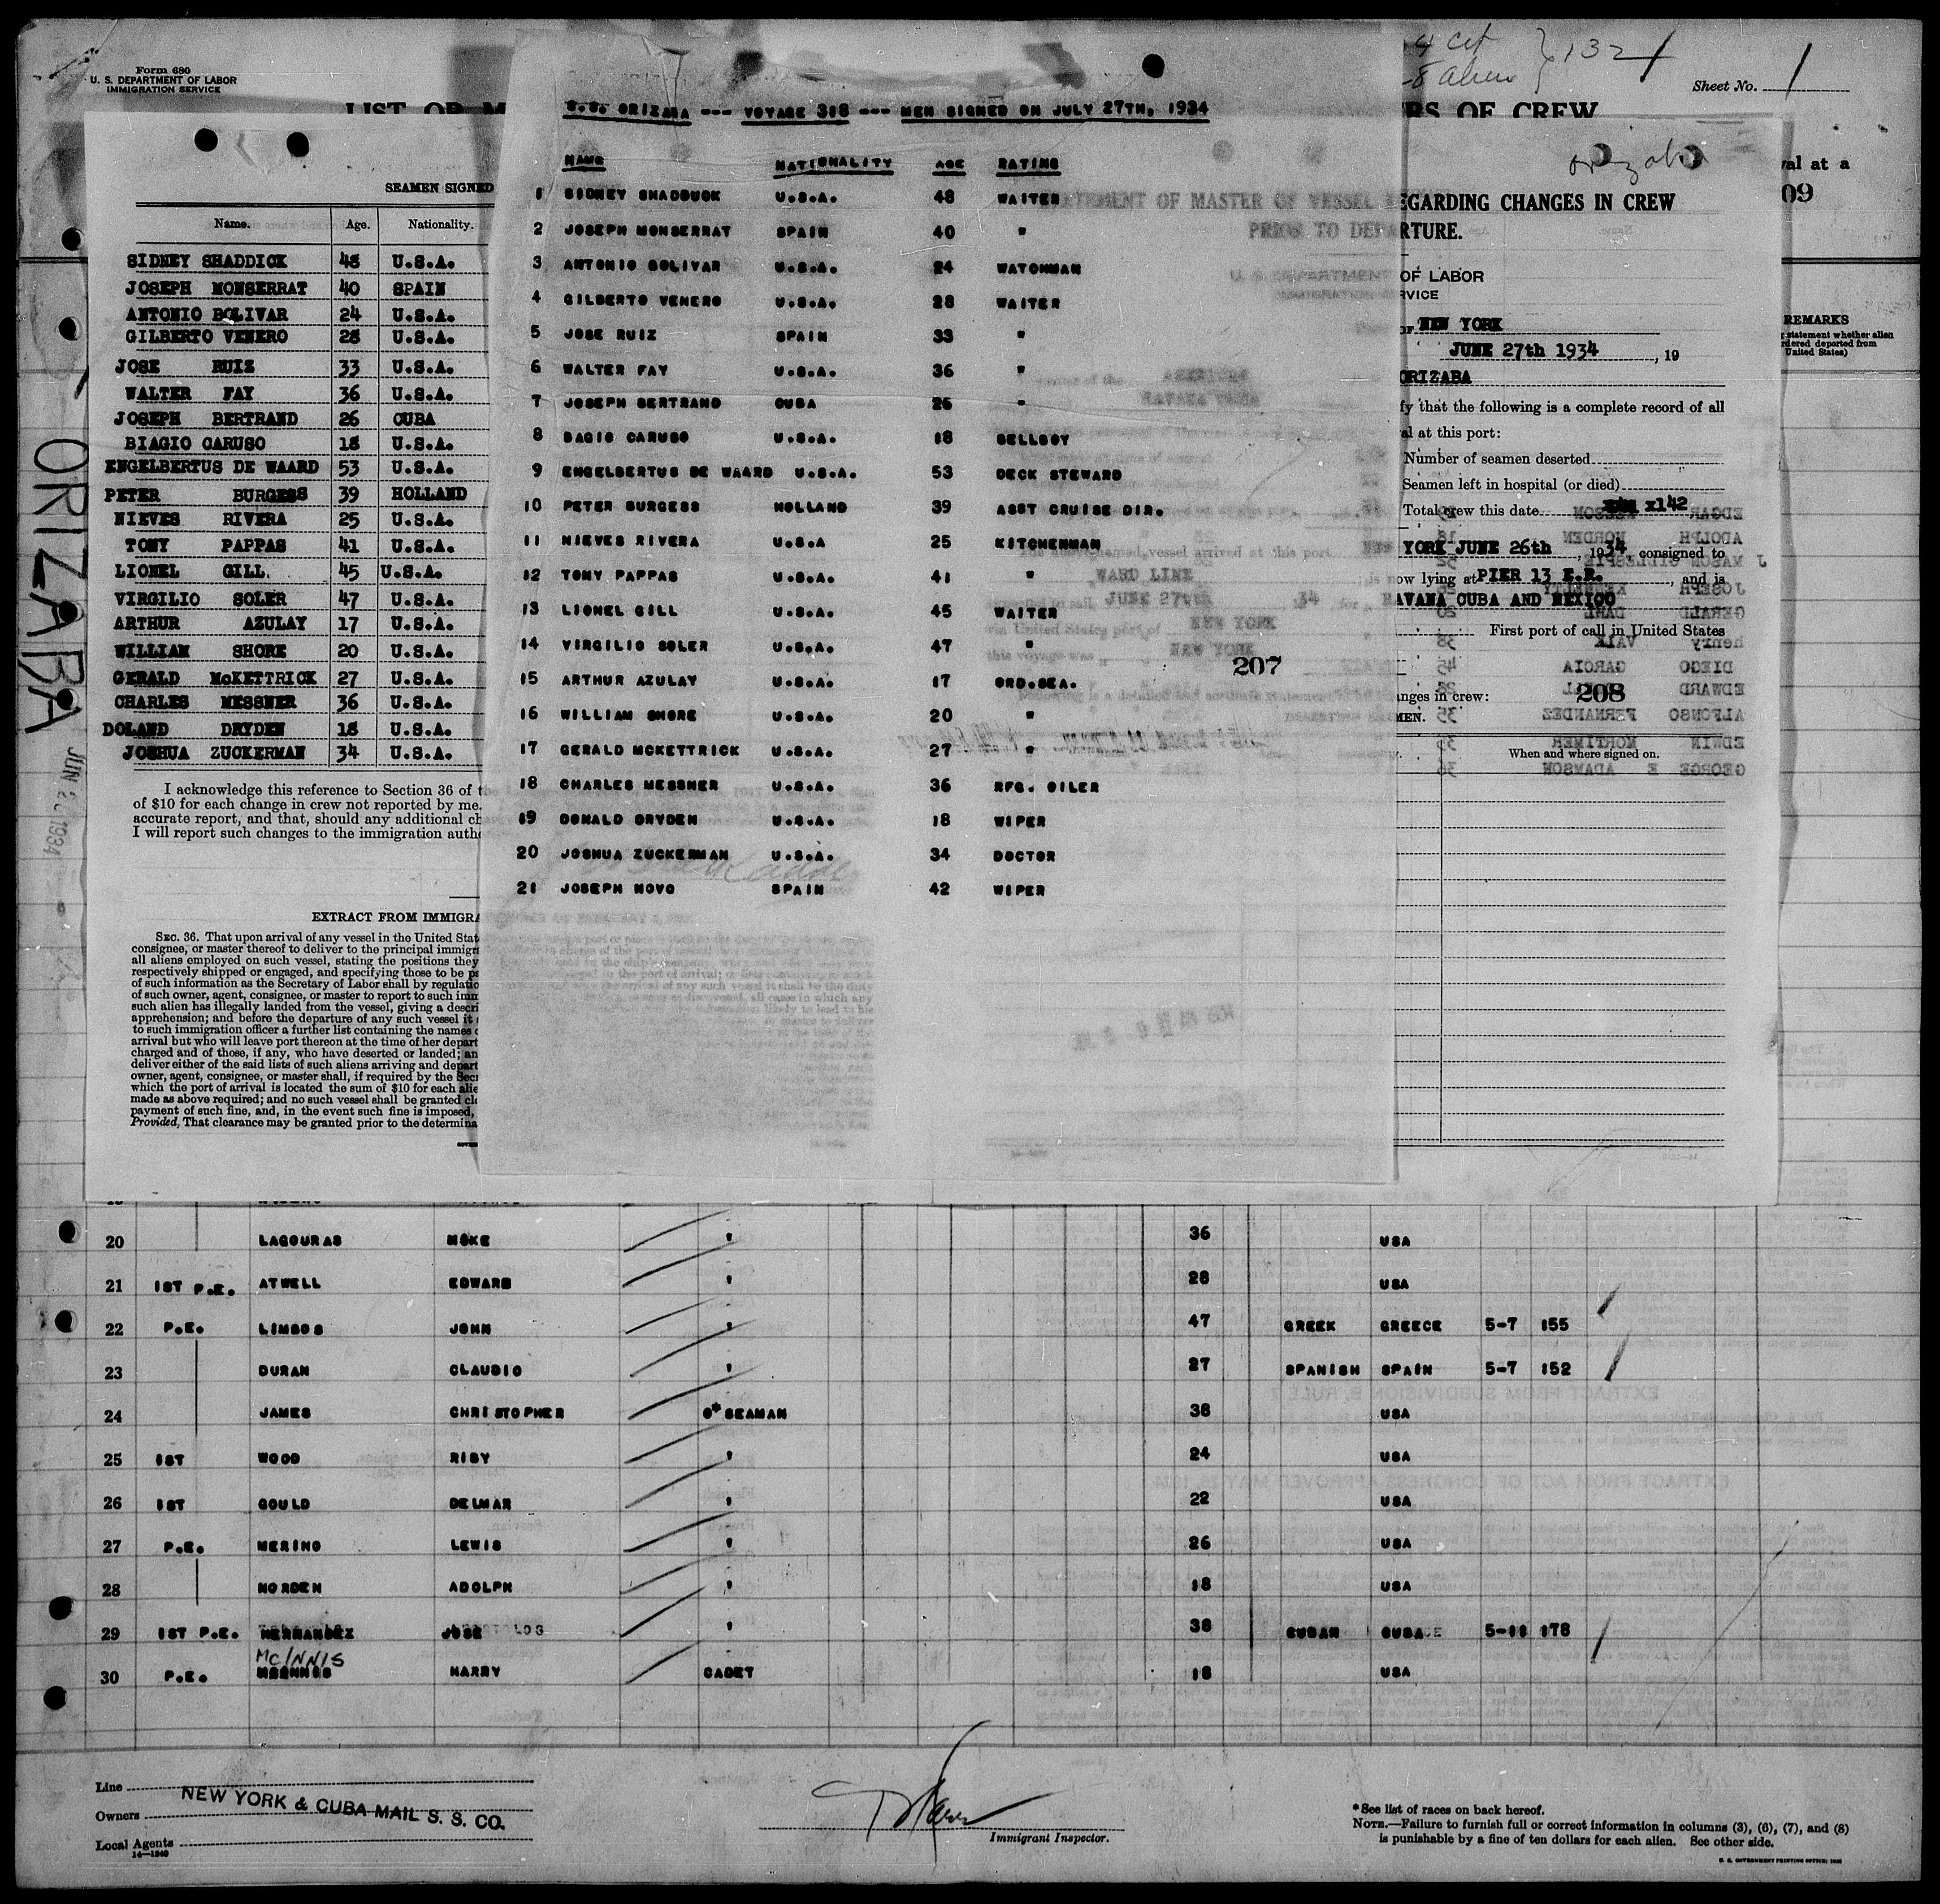 Form 680
U. S. DEPARTMENT OF LABOR
IMMIGRATION SERVICE
LIST OR M
RS OF CREW
132
Sheet No. 1
val at a
09
REMARKS
statement whether alien
ordered deported from
United States)
ORIZABA
SEAMEN SIGNED
Name. Age. Nationality.
SIDNEY SHADDICK 48 U.S.A.
JOSEPH MONSERRAT 40 SPAIN
ANTONIO BOLIVAR 24 U.S.A.
GILBERTO VENERO 28 U.S.A.
JOSE RUIZ 33 U.S.A.
WALTER FAY 36 U.S.A.
JOSEPH BERTRAND 26 CUBA
BIAGIO CARUSO 18 U.S.A.
ENGELBERTUS DE WAARD 53 U.S.A.
PETER BURGESS 39 HOLLAND
NIEVES RIVERA 25 U.S.A.
TONY PAPPAS 41 U.S.A.
LIONEL GILL. 45 U.S.A.
VIRGILIO SOLER 47 U.S.A.
ARTHUR AZULAY 17 U.S.A.
WILLIAM SHORE 20 U.S.A.
GERALD McKETTRICK 27 U.S.A.
CHARLES MESSNER 36 U.S.A.
DOLAND DRYDEN 18 U.S.A.
JOSHUA ZUCKERMAN 34 U.S.A.
I acknowledge this reference to Section 36 of t
of $10 for each change in crew not reported by me.
accurate report, and that, should any additional ch
I will report such changes to the immigration auth
EXTRACT FROM IMMIGRA
SEC. 36. That upon arrival of any vessel in the United Stat
consignee, or master thereof to deliver to the principal immigr
all aliens employed on such vessel, stating the positions they
respectively shipped or engaged, and specifying those to be p
of such information as the Secretary of Labor shall by regulatio
of such owner, agent, consignee, or master to report to such imm
such alien has illegally landed from the vessel, giving a descri
apprehension; and before the departure of any such vessel it
to such immigration officer a further list containing the names o
arrival but who will leave port thereon at the time of her depart
charged and of those, if any, who have deserted or landed; an
deliver either of the said lists of such aliens arriving and depart
owner, agent, consignee, or master shall, if required by the Secr
which the port of arrival is located the sum of $10 for each alie
made as above required; and no such vessel shall be granted cle
payment of such fine, and, in the event such fine is imposed,
Provided, That clearance may be granted prior to the determina
S.S. ORIZABA --- VOYAGE 318 --- MEN SIGNED ON JULY 27TH, 1934
NAME NATIONALITY AGE RATING
1 SIDNEY SHADDUCK U.S.A. 48 WAITER
2 JOSEPH MONSERRAT SPAIN 40 "
3 ANTONIO BOLIVAR U.S.A. 24 WATCHMAN
4 GILBERTO VENERO U.S.A. 28 WAITER
5 JOSE RUIZ SPAIN 33 "
6 WALTER FAY U.S.A. 36 "
7 JOSEPH BERTRAND CUBA 26 "
8 BAGIO CARUSO U.S.A. 18 BELLBOY
9 ENGELBERTUS DE WAARD U.S.A. 53 DECK STEWARD
10 PETER BURGESS HOLLAND 39 ASST CRUISE DIR.
11 NIEVES RIVERA U.S.A 25 KITCHENMAN
12 TONY PAPPAS U.S.A. 41 "
13 LIONEL GILL U.S.A. 45 WAITER
14 VIRGILIO SOLER U.S.A. 47 "
15 ARTHUR AZULAY U.S.A. 17 ORD.SEA.
16 WILLIAM SHORE U.S.A. 20 "
17 GERALD MCKETTRICK U.S.A. 27 "
18 CHARLES MESSNER U.S.A. 36 RFG. OILER
19 DONALD DRYDEN U.S.A. 18 WIPER
20 JOSHUA ZUCKERMAN U.S.A. 34 DOCTOR
21 JOSEPH NOVO SPAIN 42 WIPER
207
STATEMENT OF MASTER OF VESSEL REGARDING CHANGES IN CREW
PRIOR TO DEPARTURE.
U. S. DEPARTMENT OF LABOR
IMMIGRATION SERVICE
OF NEW YORK
JUNE 27th 1934, 19
ORIZABA
fy that the following is a complete record of all
al at this port:
Number of seamen deserted
Seamen left in hospital (or died)
Total crew this date x142
vessel arrived at this port NEW YORK JUNE 26th, 1934, consigned to
WARD LINE now lying at PIER 13 E.R., and is
JUNE 27th 34 for HAVANA CUBA AND MEXICO
United States port of NEW YORK First port of call in United States
this voyage was NEW YORK
anges in crew: 208
MEN.
When and where signed on.
JUN 26 1934
20 LAGOURAS MIKE " 36 USA
21 1ST P.E. ATWELL EDWARD " 28 USA
22 P.E. LIMBOS JOHN " 47 GREEK GREECE 5-7 155
23 DURAN CLAUDIO " 27 SPANISH SPAIN 5-7 152
24 JAMES CHRISTOPHER O* SEAMAN 38 USA
25 1ST WOOD RIBY " 24 USA
26 1ST GOULD DELMAR " 22 USA
27 P.E. MERINO LEWIS " 26 USA
28 NORDEN ADOLPH " 18 USA
29 1ST P.E. HERNANDEZ JOSE " 38 CUBAN CUBA 5-11 178
McINNIS
30 P.E. HARRY CADET 18 USA
Line
Owners NEW YORK & CUBA MAIL S. S. CO.
Local Agents
14—1240
Immigrant Inspector.
*See list of races on back hereof.
NOTE.—Failure to furnish full or correct information in columns (3), (6), (7), and (8)
is punishable by a fine of ten dollars for each alien. See other side.